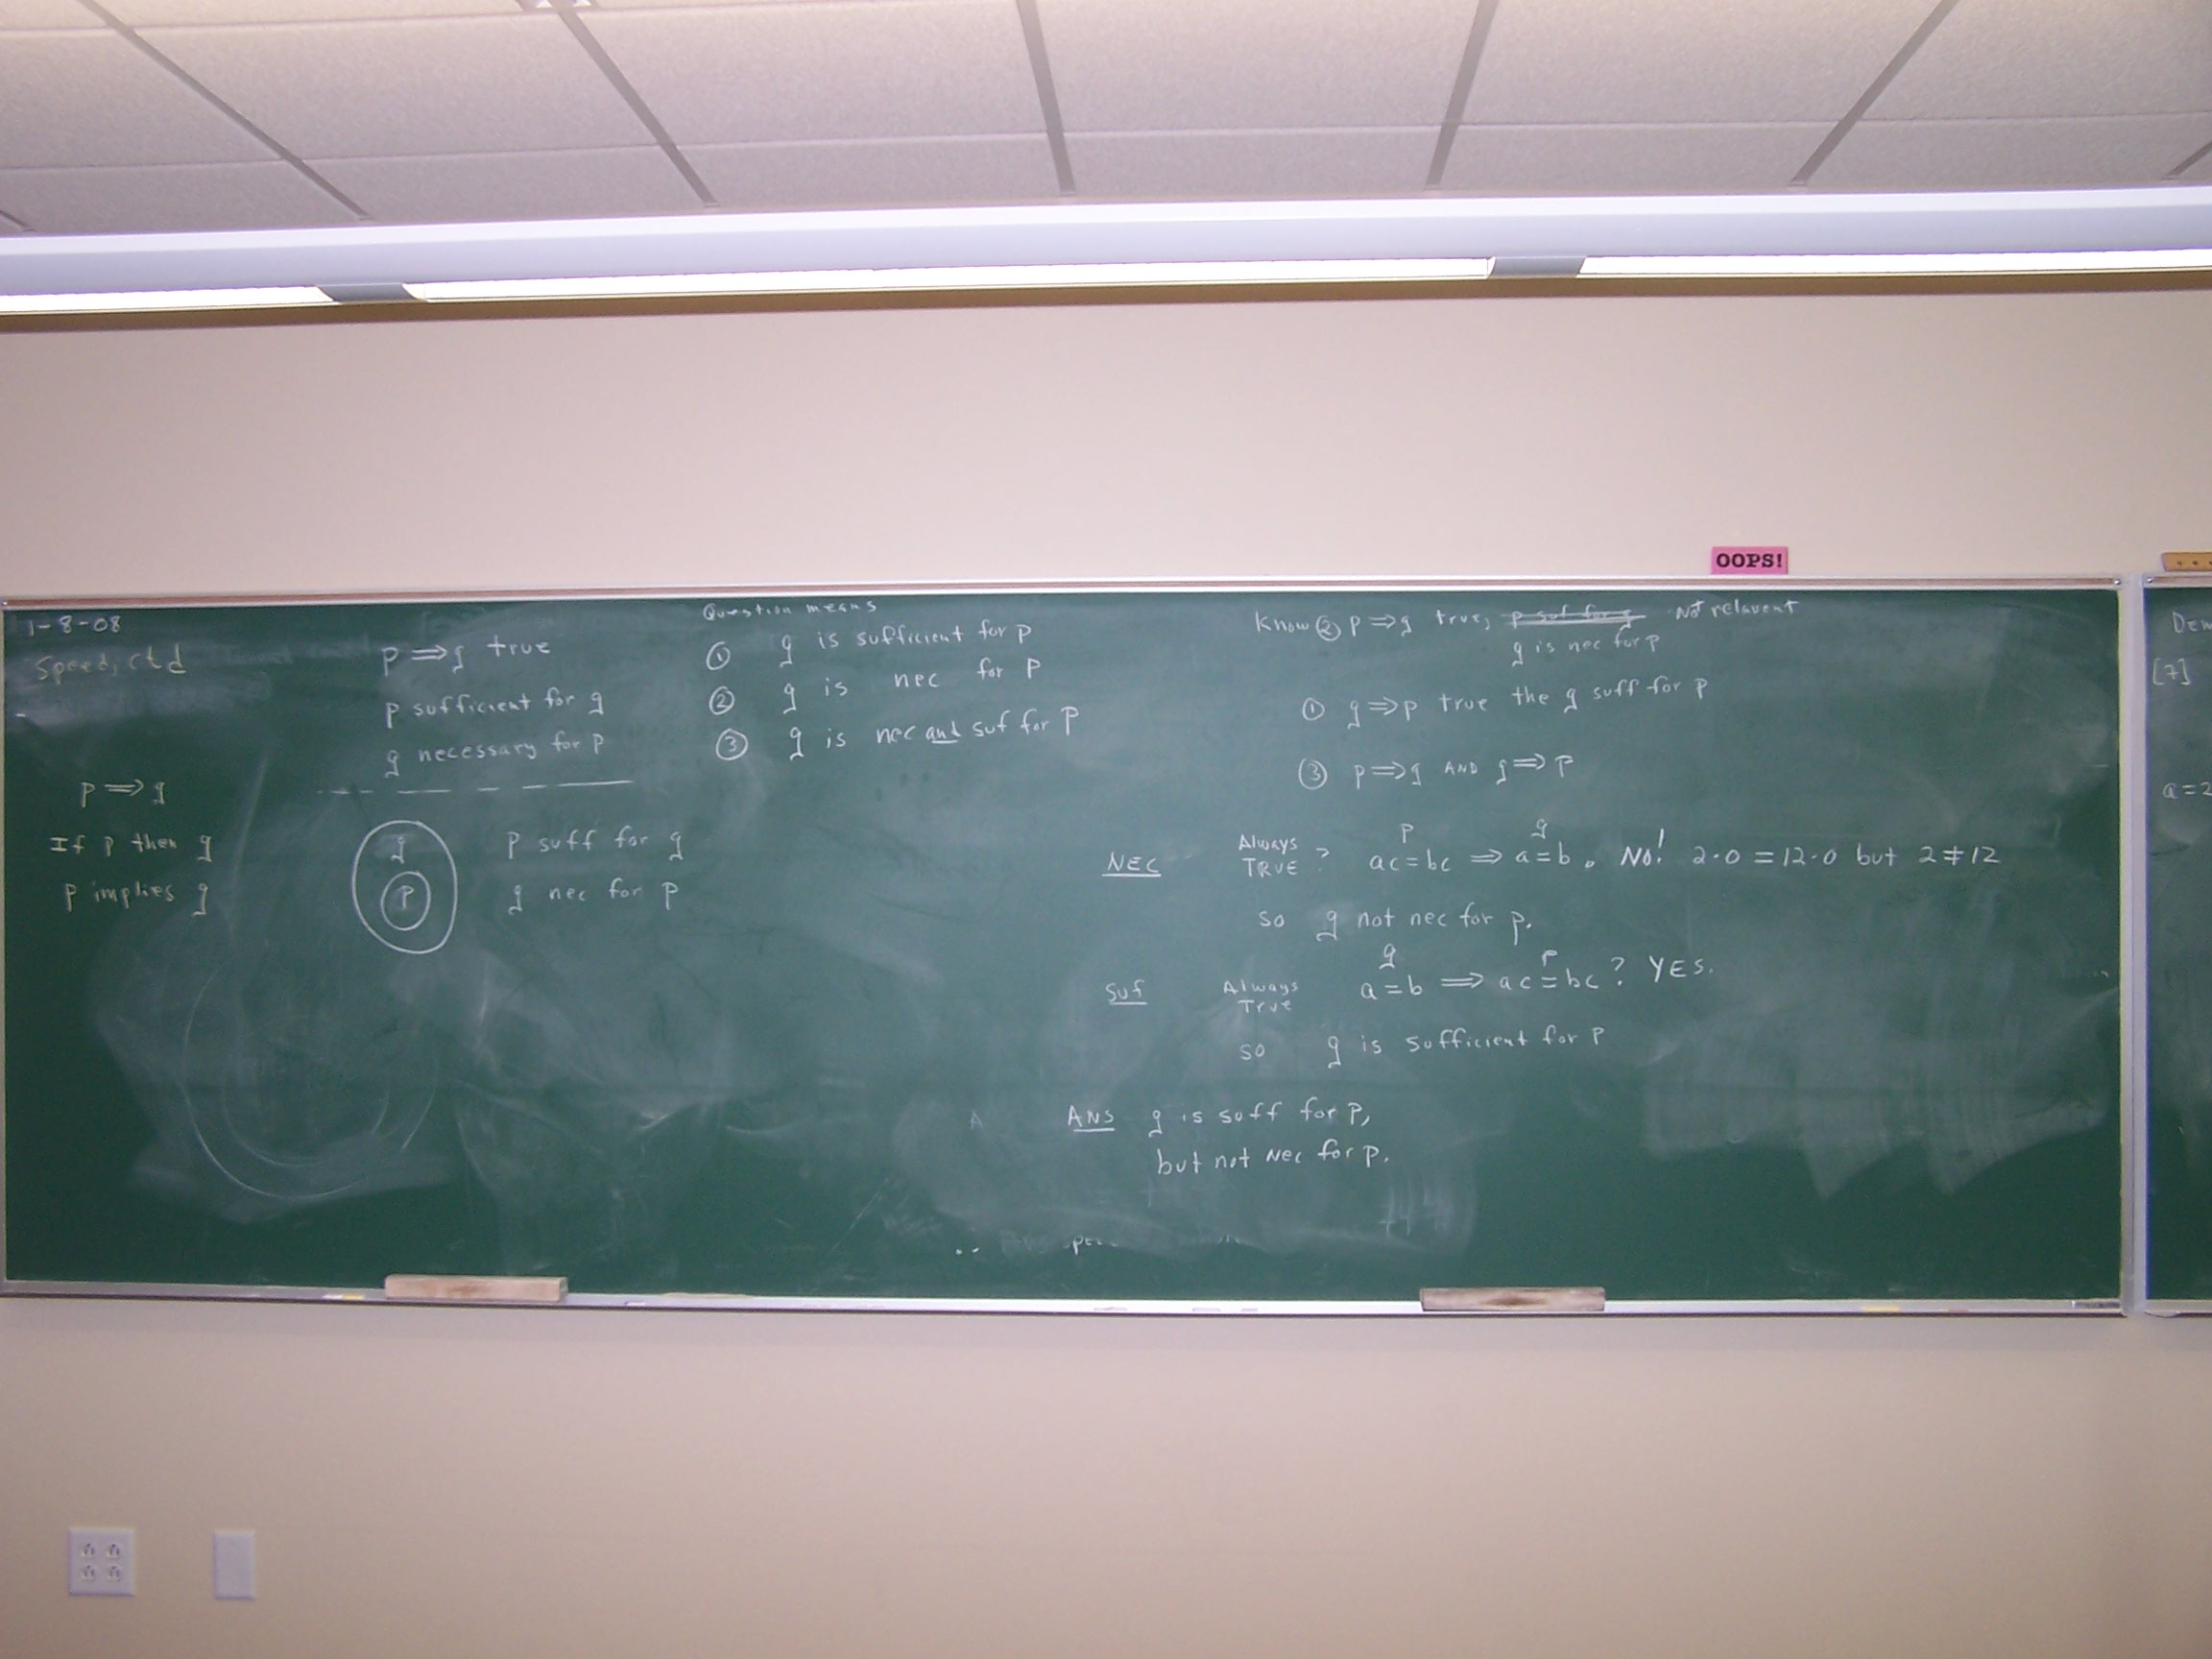 OOPS!
1-8-08
Speed, ctd
p ⟹ q
If p then q
p implies q
p ⟹ q true
p sufficient for q
q necessary for p
q
p
p suff for q
q nec for p
Question means
① q is sufficient for p
② q is nec for p
③ q is nec and suf for p
Know ② p ⟹ q true, p suf for q Not relavent
q is nec for p
① q ⟹ p true the q suff for p
③ p ⟹ q AND q ⟹ p
p q
NEC Always TRUE? ac = bc ⟹ a = b. No! 2·0 = 12·0 but 2 ≠ 12
so q not nec for p.
q p
Suf Always True a = b ⟹ ac = bc? YES.
so q is sufficient for p
ANS q is suff for p,
but not nec for p.
[7]
a = 2